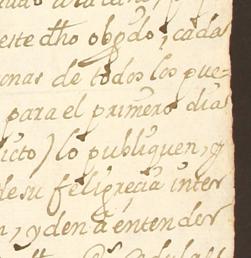 este dho obgdo, cada
onas de todos los pue-
para el primero dia
icto) lo publiquen, y
de su feligrecia inter
n, y den à entender